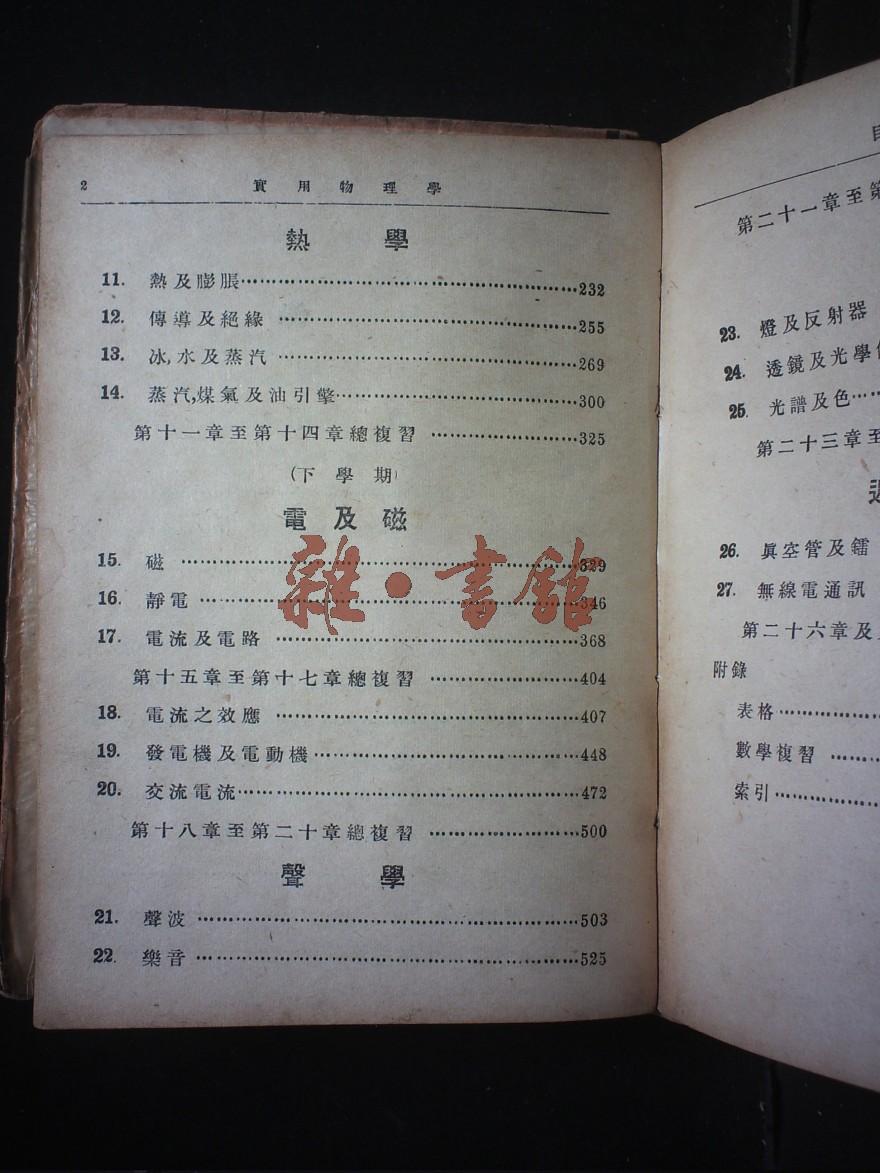 2 實用物理學
熱學
11. 熱及膨脹 232
12. 傳導及絕緣 255
13. 冰,水及蒸汽 269
14. 蒸汽,煤氣及油引擎 300
第十一章至第十四章總複習 325
(下學期)
電及磁
15. 磁 329
16. 靜電 346
17. 電流及電路 368
第十五章至第十七章總複習 404
18. 電流之效應 407
19. 發電機及電動機 448
20. 交流電流 472
第十八章至第二十章總複習 500
聲學
21. 聲波 503
22. 樂音 525
雜·書館
第二十一章至第
23. 燈及反射器
24. 透鏡及光學
25. 光譜及色
第二十三章至
26. 眞空管及鐳
27. 無線電通訊
第二十六章及
附錄
表格
數學複習
索引